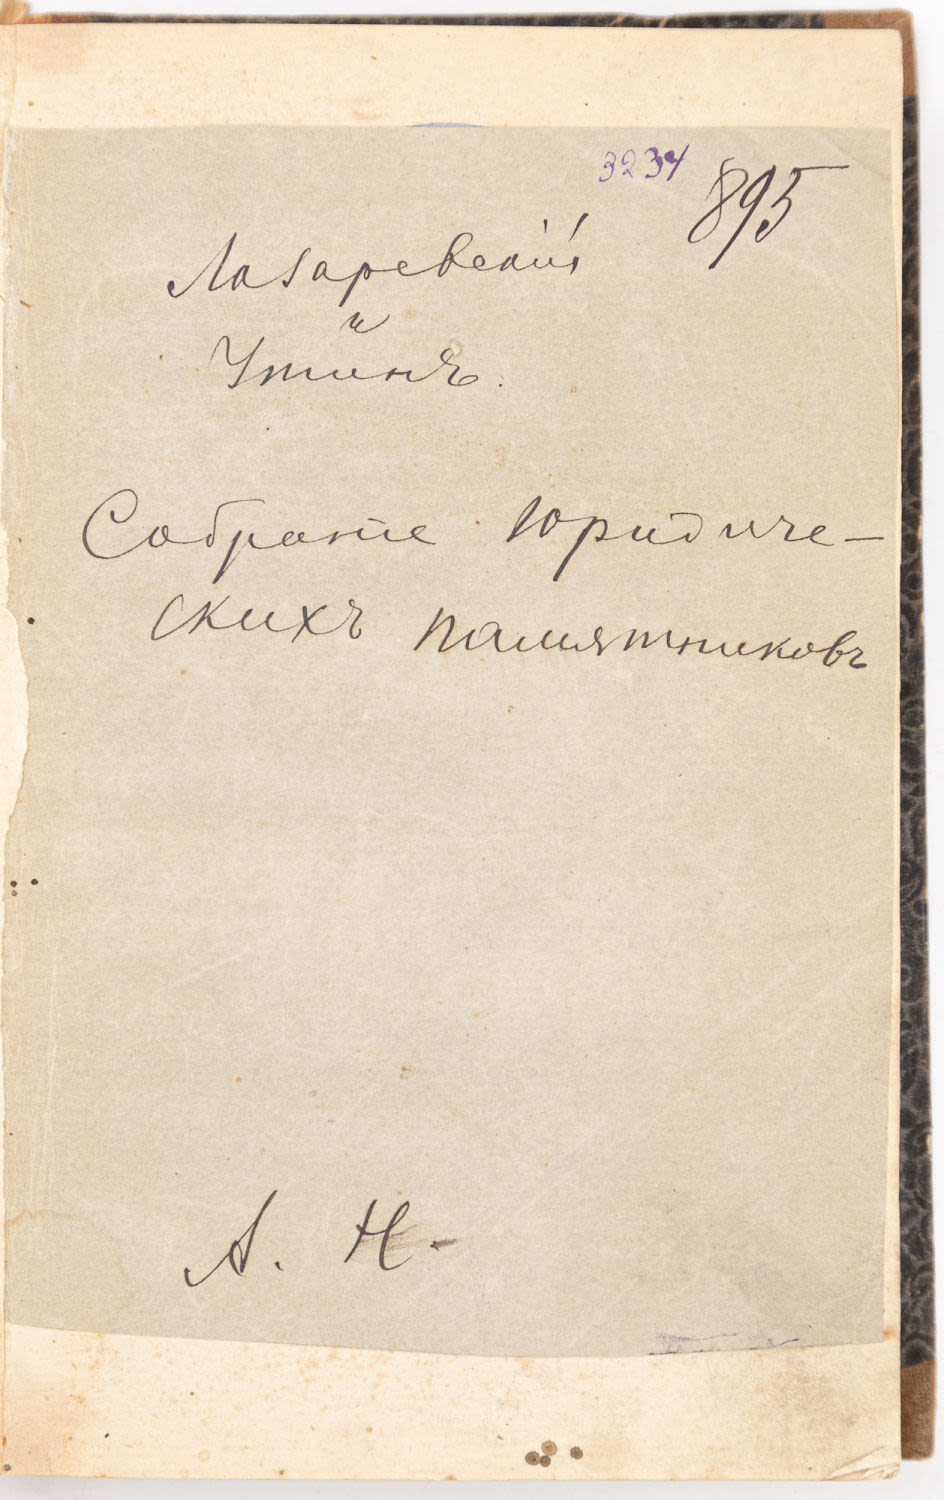 3234 895
Лазаревскій
и
Утинъ.
Собраніе юридиче-
скихъ памятниковъ
А. Н.